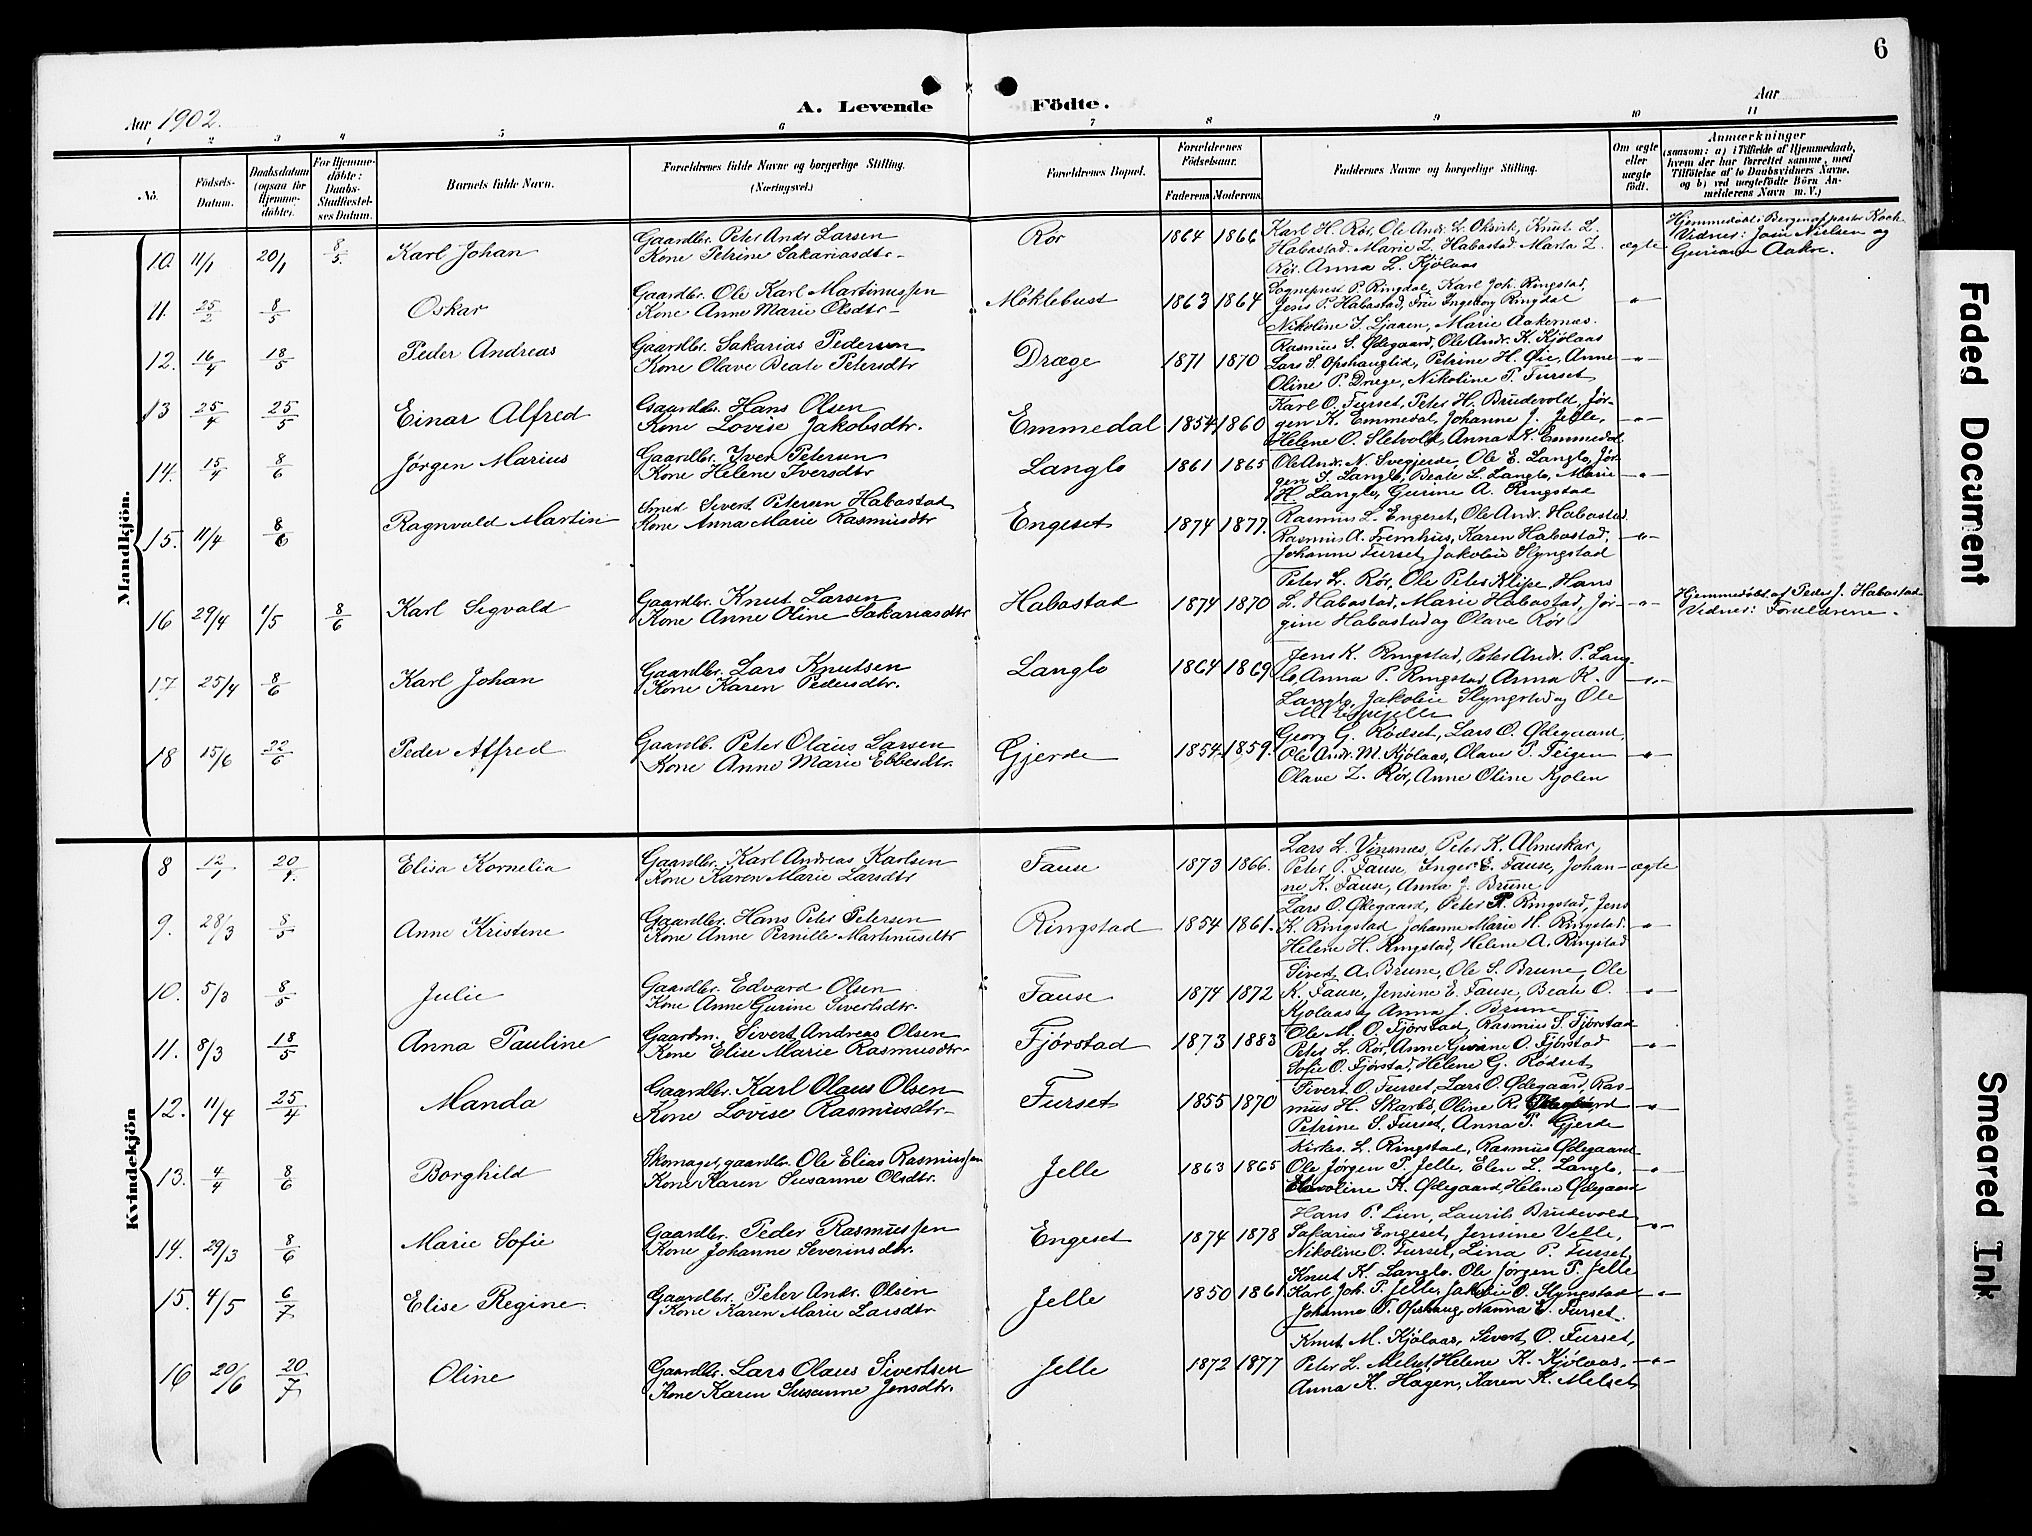 6
Aar 1902.
A. Levende Födte.
Aar
1 2 3 4 5 6 7 8 9 10 11
No.
Födsels-Datum.
Daabsdatum (ogsaa for Hjemme-döbte).
For Hjemme-döbte: Daabs-Stadfæstel-ses Datum.
Barnets fulde Navn.
Forældrenes fulde Navne og borgerlige Stilling. (Næringsvei.)
Forældrenes Bopæl.
Forældrenes Födselsaar.
Faderens Moderens
Faddernes Navne og borgerlige Stilling.
Om ægte eller uægte födt.
Anmærkninger
(saasom: a) i Tilfælde af Hjemmedaab,
hvem der har forrettet samme, med
Tilföielse af to Daabsvidners Navne,
og b) ved uægtefödte Börn An-
melderens Navn m. V.)
Mandkjön.
10. 11/1 20/1 8/5. Karl Johan
Gaardbr. Peter Andr Larsen
Kone Petrine Sakariasdtr-
Rør 1864 1866
Karl H. Rør, Ole Andr. L. Oksvik, Knut L.
Habostad. Marie L. Habostad Marta L.
Rør. Anna L. Kjølaas
ægte
Hjemmedøbt i Bergen af pastor Koch-
Vidner: Nielsen og
Guriane Aakre.
11. 25/2 8/5 Oskar
Gaardbr. Ole Karl Martinussen
Kone Anne Marie Olsdtr-
Møklebust 1863 1864
Sogneprest P. Ringdal, Karl Joh. Ringstad,
Jens P. Habostad, Fru Ingeborg Ringdal
Nikoline J. Ljaaen, Marie Aakernes.
-"-
12. 16/4 18/5 Peder Andreas
Gaardbr. Sakarias Pedersen
Kone Olave Beate Petersdtr
Dræge 1871 1870
Rasmus S. Ødegaard, Ole Andr. K. Kjølaas
Lars S. Opshauglid, Petrine H. Øie, Anne
Oline P. Dræge, Nikoline P. Furset
-"-
13 25/4 25/5 Einar Alfred
Gaardbr. Hans Olsen
Kone Lovise Jakobsdtr.
Emmedal 1854 1860
Karl O. Furset, Peter H. Brudevold, Jør-
gen K. Emmedal, Johanne J. Jelle,
Helene O. Sletvold, Anna K. Emmedal
-"-
14. 15/4 8/6 Jørgen Marius
Gaardbr. Iver Petersen
Kone Helene Iversdtr
Langlo 1861 1865
Ole Andr. N. Svegjerde, Ole E. Langlo, Jør-
gen I. Langlo, Beate L. Langlo, Marie
H. Langlo, Gurine A. Ringstad
-"-
15. 11/4 8/6 Ragnvald Martin
Smed Sivert Petersen Habostad
Kone Anna Marie Rasmusdtr
Engeset 1874 1877.
Rasmus L. Engeset, Ole Andr. Habostad
Rasmus A. Fremhus, Karen Habostad,
Johanne Furset, Jakobie Slyngstad
-"-
16 29/4 1/5 8/6 Karl Sigvald
Gaardbr. Knut Larsen
Kone Anne Oline Sakariasdtr
Habostad 1874 1870
Peter L. Rør, Ole Peter Klipe, Hans
L. Habostad, Marie Habostad, Jør-
gine Habostad og Olave Rør
-"-
Hjemmedøbt af Peder J. Habostad
Vidner: Forældrene.
17 25/4 8/6 Karl Johan
Gaardbr. Lars Knutsen
Kone Karen Pedersdtr.
Langlo 1864 1869
Jens K. Ringstad, Peter Andr. P. Lang-
lo, Anna P. Ringstad, Anna K.
Langlo, Jakobie Slyngstad og Ole
-"-
18 15/6 22/6 Peder Alfred
Gaardb. Peter Olaus Larsen
Kone Anne Marie Ebbesdtr.
Gjerde 1854 1859.
Georg G. Rødset, Lars O. Ødegaard,
Ole Andr. M. Kjølaas, Olave P. Teigen
Olave L. Rør, Anne Oline Kjølen
-"-
Kvindekjön
8 12/1 20/4. Elisa Kornelia
Gaardbr. Karl Andreas Karlsen
Kone Karen Marie Larsdtr
Fause 1873 1866.
Lars L. Vinsnes, Peter K. Almeskar,
Peter P. Fause, Inger E. Fause, Johan-
ne K. Fause, Anna J. Brune
ægte
9. 28/3 8/5 Anne Kristine
Gaardbr. Hans Peter Petersen
Kone Anne Pernille Martinusdtr
Ringstad 1854 1861.
Lars O. Ødegaard, Peter R. Ringstad, Jens
K. Ringstad Johanne Marie H. Ringstad.
Helene H. Ringstad, Helene A. Ringstad
-"-
10. 5/3 8/5 Julie
Gaardbr. Edvard Olsen
Kone Anne Gurine Sivertsdtr.
Fause 1874 1872
Sivert A. Brune, Ole S. Brune, Ole
K. Fause, Jensine E. Fause, Beate O.
Kjølaas, Anna J. Brune
-"-
11. 8/3 18/5 Anna Pauline
Gaardm. Sivert Andreas Olsen
Kone Elise Marie Rasmusdtr-
Fjørstad 1873 1883
Ole M. O. Fjørstad, Rasmus S. Fjørstad
Peter L. Rør, Anne Guriane O. Fjørstad
Sofie O. Fjørstad, Helene G. Rødset
-"-
12. 11/4 25/4 Manda
Gaardbr. Karl Olaus Olsen
Kone Lovise Rasmusdtr-
Furset 1855 1870
Sivert O. Furset, Lars O. Ødegaard, Ras-
mus H. Skarbø, Oline R. Ødegaard
Petrine S. Furset, Anna P. Gjerde
-"-
13. 4/4 8/6 Borghild
Skomager, gaardbr. Ole Elias Rasmussen
Kone Karen Susanne Olsdtr.
Jelle 1863 1865
Kirkes. L. Ringstad, Rasmus Ødegaard
Ole Jørgen P. Jelle, Elen L. Langlo,
Karoline K. Ødegaard, Helene Ødegaard
-"-
14. 29/3 8/6 Marie Sofie
Gaardbr. Peder Rasmussen
Kone Johanne Severinsdtr.
Engeset 1874 1878
Hans P. Lien, Laurits Brudevold
Sakarias Engeset, Jensine Velle,
Nikoline O. Furset, Lina P. Furset,
-"-
15. 4/5 6/7 Elise Regine
Gaardbr. Peter Andr. Olsen
Kone Karen Marie Larsdtr
Jelle 1850 1861
Knut K. Langlo. Ole Jørgen P. Jelle
Karl Joh. P. Jelle, Jakobie O. Slyngstad
Johanne T. Opshaug, Nanna E. Furset.
-"-
16 20/6 20/7 Oline
Gaardbr. Lars Olaus Sivertsen
Kone Karen Susanne Jensdtr.
Jelle 1872 1877
Knut M. Kjølaas, Sivert O. Furset,
Peter L. Melset, Helene K. Kjølaas,
Anna K. Hagen, Karen K. Melset
-"-
Faded Document
Smeared Ink